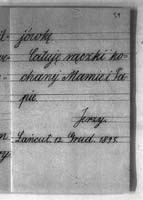 jówkę
Całuję rączki ko-
chanéj Mamie i Pa-
pie.
Jerzy.
Łańcut. 12 Grud. 1895.